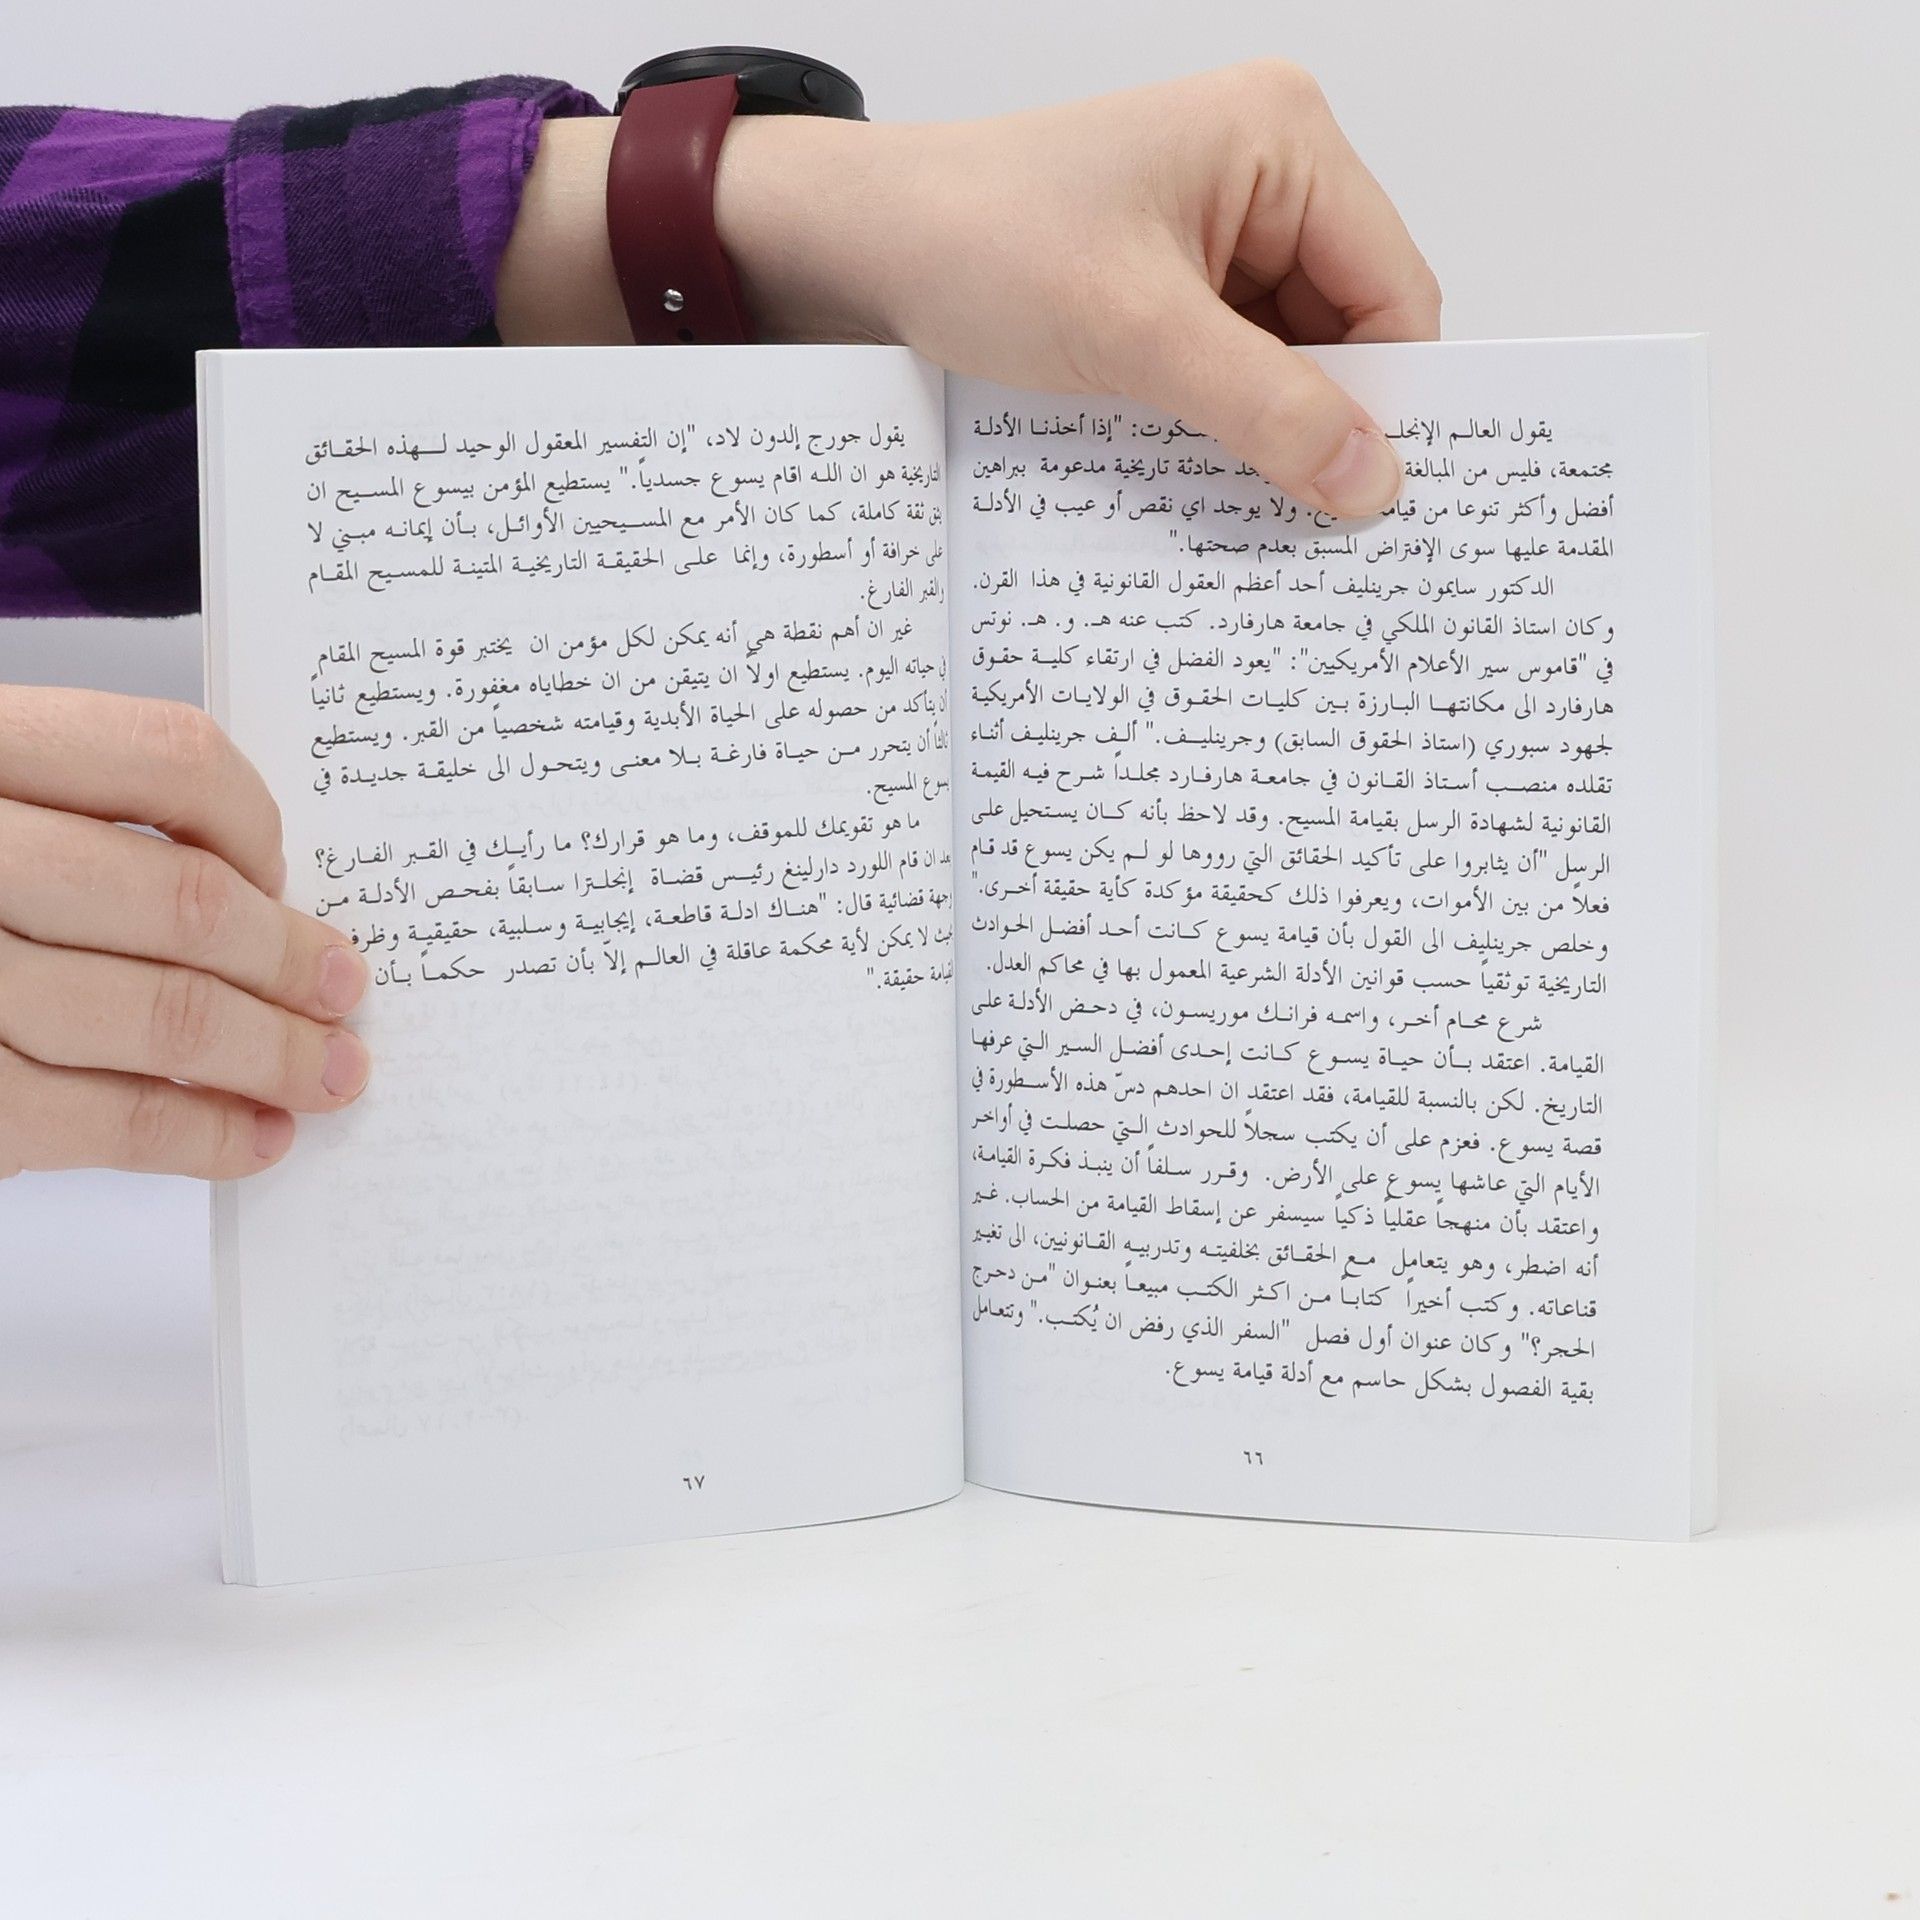 يقول العالم الإنجلـ سكوت: "إذا أخذنا الأدلة
مجتمعة، فليس من المبالغة حادثة تاريخية مدعومة ببراهين
أفضل وأكثر تنوعا من ولا يوجد اي نقص أو عيب في الأدلة
المقدمة عليها سوى الإفتراض المسبق بعدم صحتها."
الدكتور سايمون جرينليف أحد أعظم العقول القانونية في هذا القرن.
وكان استاذ القانون الملكي في جامعة هارفارد. كتب عنه هـ. و. هـ. نوتس
في "قاموس سير الأعلام الأمريكيين": "يعود الفضل في ارتقاء كلية حقوق
هارفارد الى مكانتها البارزة بين كليات الحقوق في الولايات الأمريكية
لجهود سبوري (استاذ الحقوق السابق) وجرينليف." ألف جرينليف أثناء
تقلده منصب أستاذ القانون في جامعة هارفارد مجلداً شرح فيه القيمة
القانونية لشهادة الرسل بقيامة المسيح. وقد لاحظ بأنه كان يستحيل على
الرسل "أن يثابروا على تأكيد الحقائق التي رووها لو لم يكن يسوع قد قام
فعلاً من بين الأموات، ويعرفوا ذلك كحقيقة مؤكدة كأية حقيقة أخرى."
وخلص جرينليف الى القول بأن قيامة يسوع كانت أحد أفضل الحوادث
التاريخية توثقياً حسب قوانين الأدلة الشرعية المعمول بها في محاكم العدل.
شرع محام أخر، واسمه فرانك موريسون، في دحض الأدلة على
القيامة. اعتقد بأن حياة يسوع كانت إحدى أفضل السير التي عرفها
التاريخ. لكن بالنسبة للقيامة، فقد اعتقد ان احدهم دسّ هذه الأسطورة في
قصة يسوع. فعزم على أن يكتب سجلاً للحوادث التي حصلت في أواخر
الأيام التي عاشها يسوع على الأرض. وقرر سلفاً أن ينبذ فكرة القيامة،
واعتقد بأن منهجاً عقلياً ذكياً سيسفر عن إسقاط القيامة من الحساب. غير
أنه اضطر، وهو يتعامل مع الحقائق بخلفيته وتدريبه القانونيين، الى تغيير
قناعاته. وكتب أخيراً كتاباً من اكثر الكتب مبيعاً بعنوان "من دحرج
الحجر؟" وكان عنوان أول فصل "السفر الذي رفض ان يُكتب." وتتعامل
بقية الفصول بشكل حاسم مع أدلة قيامة يسوع.
٦٦
يقول جورج إلدون لاد، "إن التفسير المعقول الوحيد لهذه الحقائق
التاريخية هو ان الله اقام يسوع جسدياً." يستطيع المؤمن بيسوع المسيح ان
يثق ثقة كاملة، كما كان الأمر مع المسيحيين الأوائل، بأن إيمانه مبني لا
على خرافة أو أسطورة، وإنما على الحقيقة التاريخية المتينة للمسيح المقام
والقبر الفارغ.
غير ان أهم نقطة هي أنه يمكن لكل مؤمن ان يختبر قوة المسيح المقام
في حياته اليوم. يستطيع اولاً ان يتيقن من ان خطاياه مغفورة. ويستطيع ثانياً
أن يتأكد من حصوله على الحياة الأبدية وقيامته شخصياً من القبر. ويستطيع
ثالثاً أن يتحرر من حياة فارغة بلا معنى ويتحول الى خليقة جديدة في
يسوع المسيح.
ما هو تقويمك للموقف، وما هو قرارك؟ ما رأيك في القبر الفارغ؟
بعد ان قام اللورد دارلينغ رئيس قضاة إنجلترا سابقاً بفحص الأدلة من
وجهة قضائية قال: "هناك ادلة قاطعة، إيجابية وسلبية، حقيقية وظرفـ
بحيث لا يمكن لأية محكمة عاقلة في العالم إلاّ بأن تصدر حكماً بأن
القيامة حقيقة."
٦٧